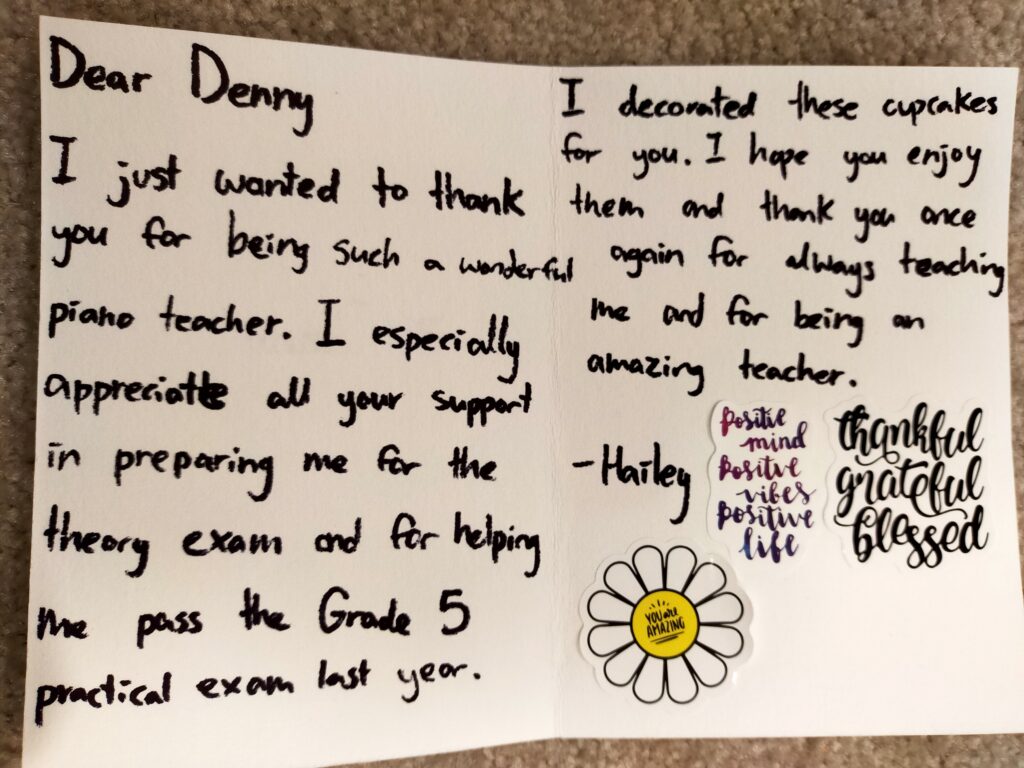 Dear Denny
I just wanted to thank
you for being such a wonderful
piano teacher. I especially
appreciate all your support
in preparing me for the
theory exam and for helping
me pass the Grade 5
practical exam last year.
I decorated these cupcakes
for you. I hope you enjoy
them and thank you once
again for always teaching
me and for being an
amazing teacher.
-Hailey
positive
mind
positve
vibes
positive
life
thankful
grateful
blessed
YOU are
AMAZING